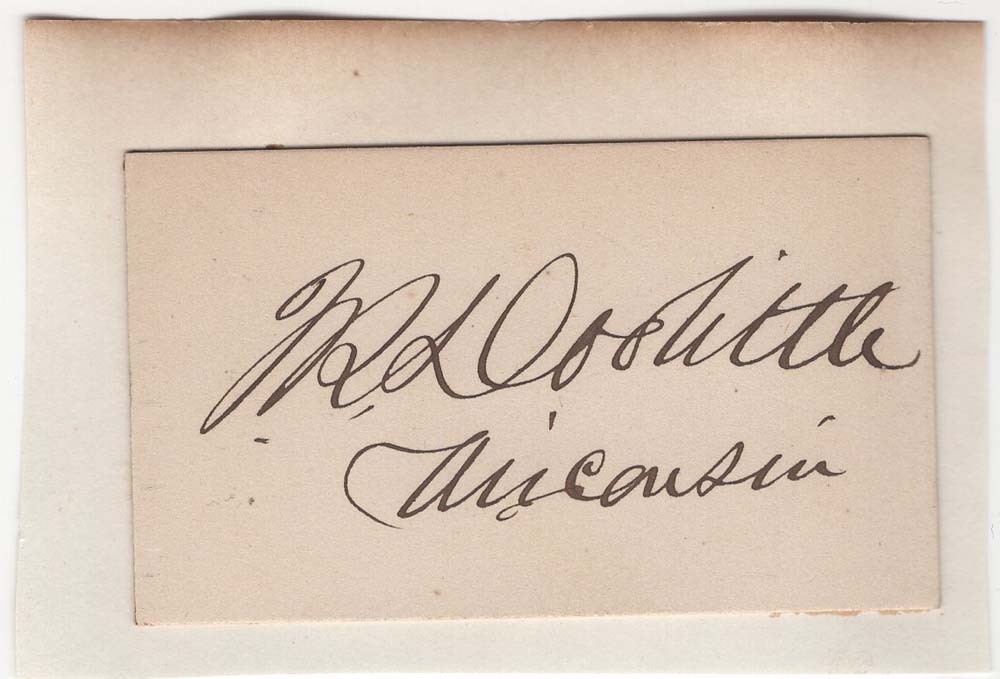 J R Doolittle
Wisconsin